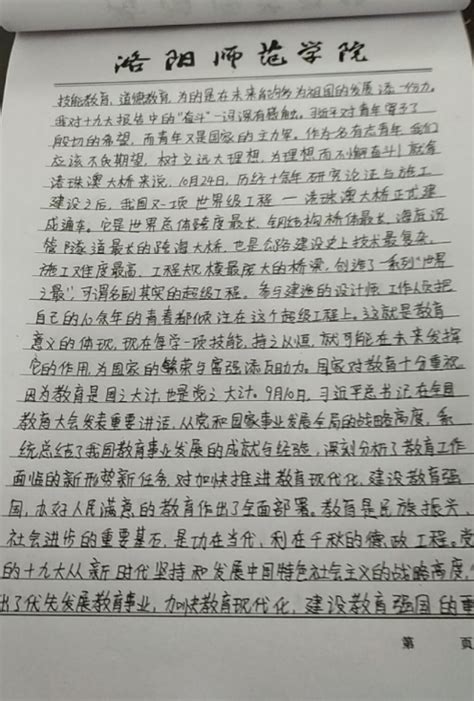 洛阳师范学院
技能教育、道德教育,为的是在未来能够为祖国的发展添一份力。
我对十九大报告中的"奋斗"一词深有感触。习近平对青年寄予了
殷切的希望,而青年又是国家的主力军。作为一名有志青年,我们
应该不负期望,树立远大理想,为理想而不懈奋斗!就拿
港珠澳大桥来说,10月24日,历经十余年研究论证与施工
建设之后,我国又一项世界级工程——港珠澳大桥正式建
成通车。它是世界总体跨度最长、钢结构桥体最长、海底沉
管隧道最长的跨海大桥,也是公路建设史上技术最复杂、
施工难度最高、工程规模最庞大的桥梁,创造了一系列"世界
之最",可谓名副其实的超级工程。参与建造的设计师、工作人员把
自己的10余年的青春都倾注在这个超级工程上。这就是教育
意义的体现,现在每学一项技能,持之以恒,就可能在未来发挥
它的作用,为国家的繁荣与富强添瓦助力。国家对教育十分重视,
因为教育是国之大计,也是党之大计。9月10日,习近平总书记在全国
教育大会发表重要讲话,从党和国家事业发展全局的战略高度,系
统总结了我国教育事业发展的成就与经验,深刻分析了教育工作
面临的新形势新任务,对加快推进教育现代化、建设教育强
国、办好人民满意的教育作出了全面部署。教育是民族振兴、
社会进步的重要基石,是功在当代、利在千秋的德政工程。党
的十九大从新时代坚持和发展中国特色社会主义的战略高度,
出了优先发展教育事业、加快教育现代化、建设教育强国的重
第 页